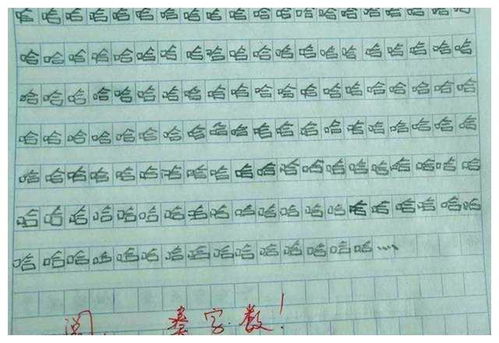 哈哈哈哈哈哈哈哈哈哈哈哈哈哈哈哈哈哈哈哈
哈哈哈哈哈哈哈哈哈哈哈哈哈哈哈哈哈哈哈哈
哈哈哈哈哈哈哈哈哈哈哈哈哈哈哈哈哈哈哈哈
哈哈哈哈哈哈哈哈哈哈哈哈哈哈哈哈哈哈哈哈
哈哈哈哈哈哈哈哈哈哈哈哈哈哈哈哈哈哈哈哈
哈哈哈哈哈哈哈哈哈哈哈哈哈哈哈哈哈哈哈哈
哈哈哈哈哈哈哈哈哈哈哈哈哈哈哈····
阅 字数！